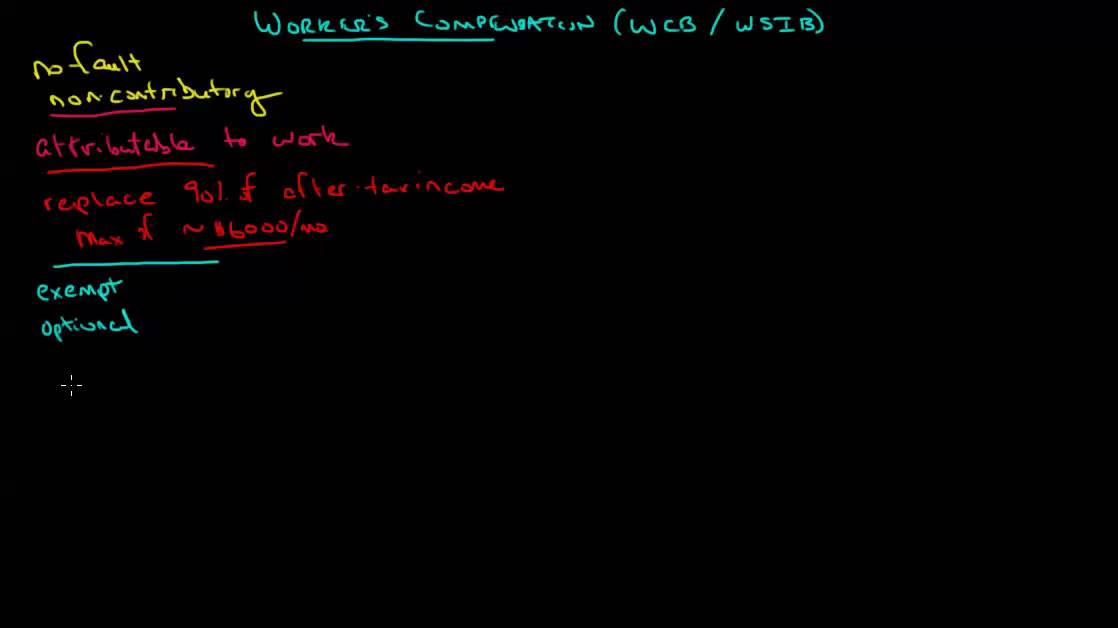 WORKER'S COMPENSATION (WCB / WSIB)
no fault
non-contributory
attributable to work
replace 90% of after-tax income
Max of ~ $6000/mo
exempt
optional